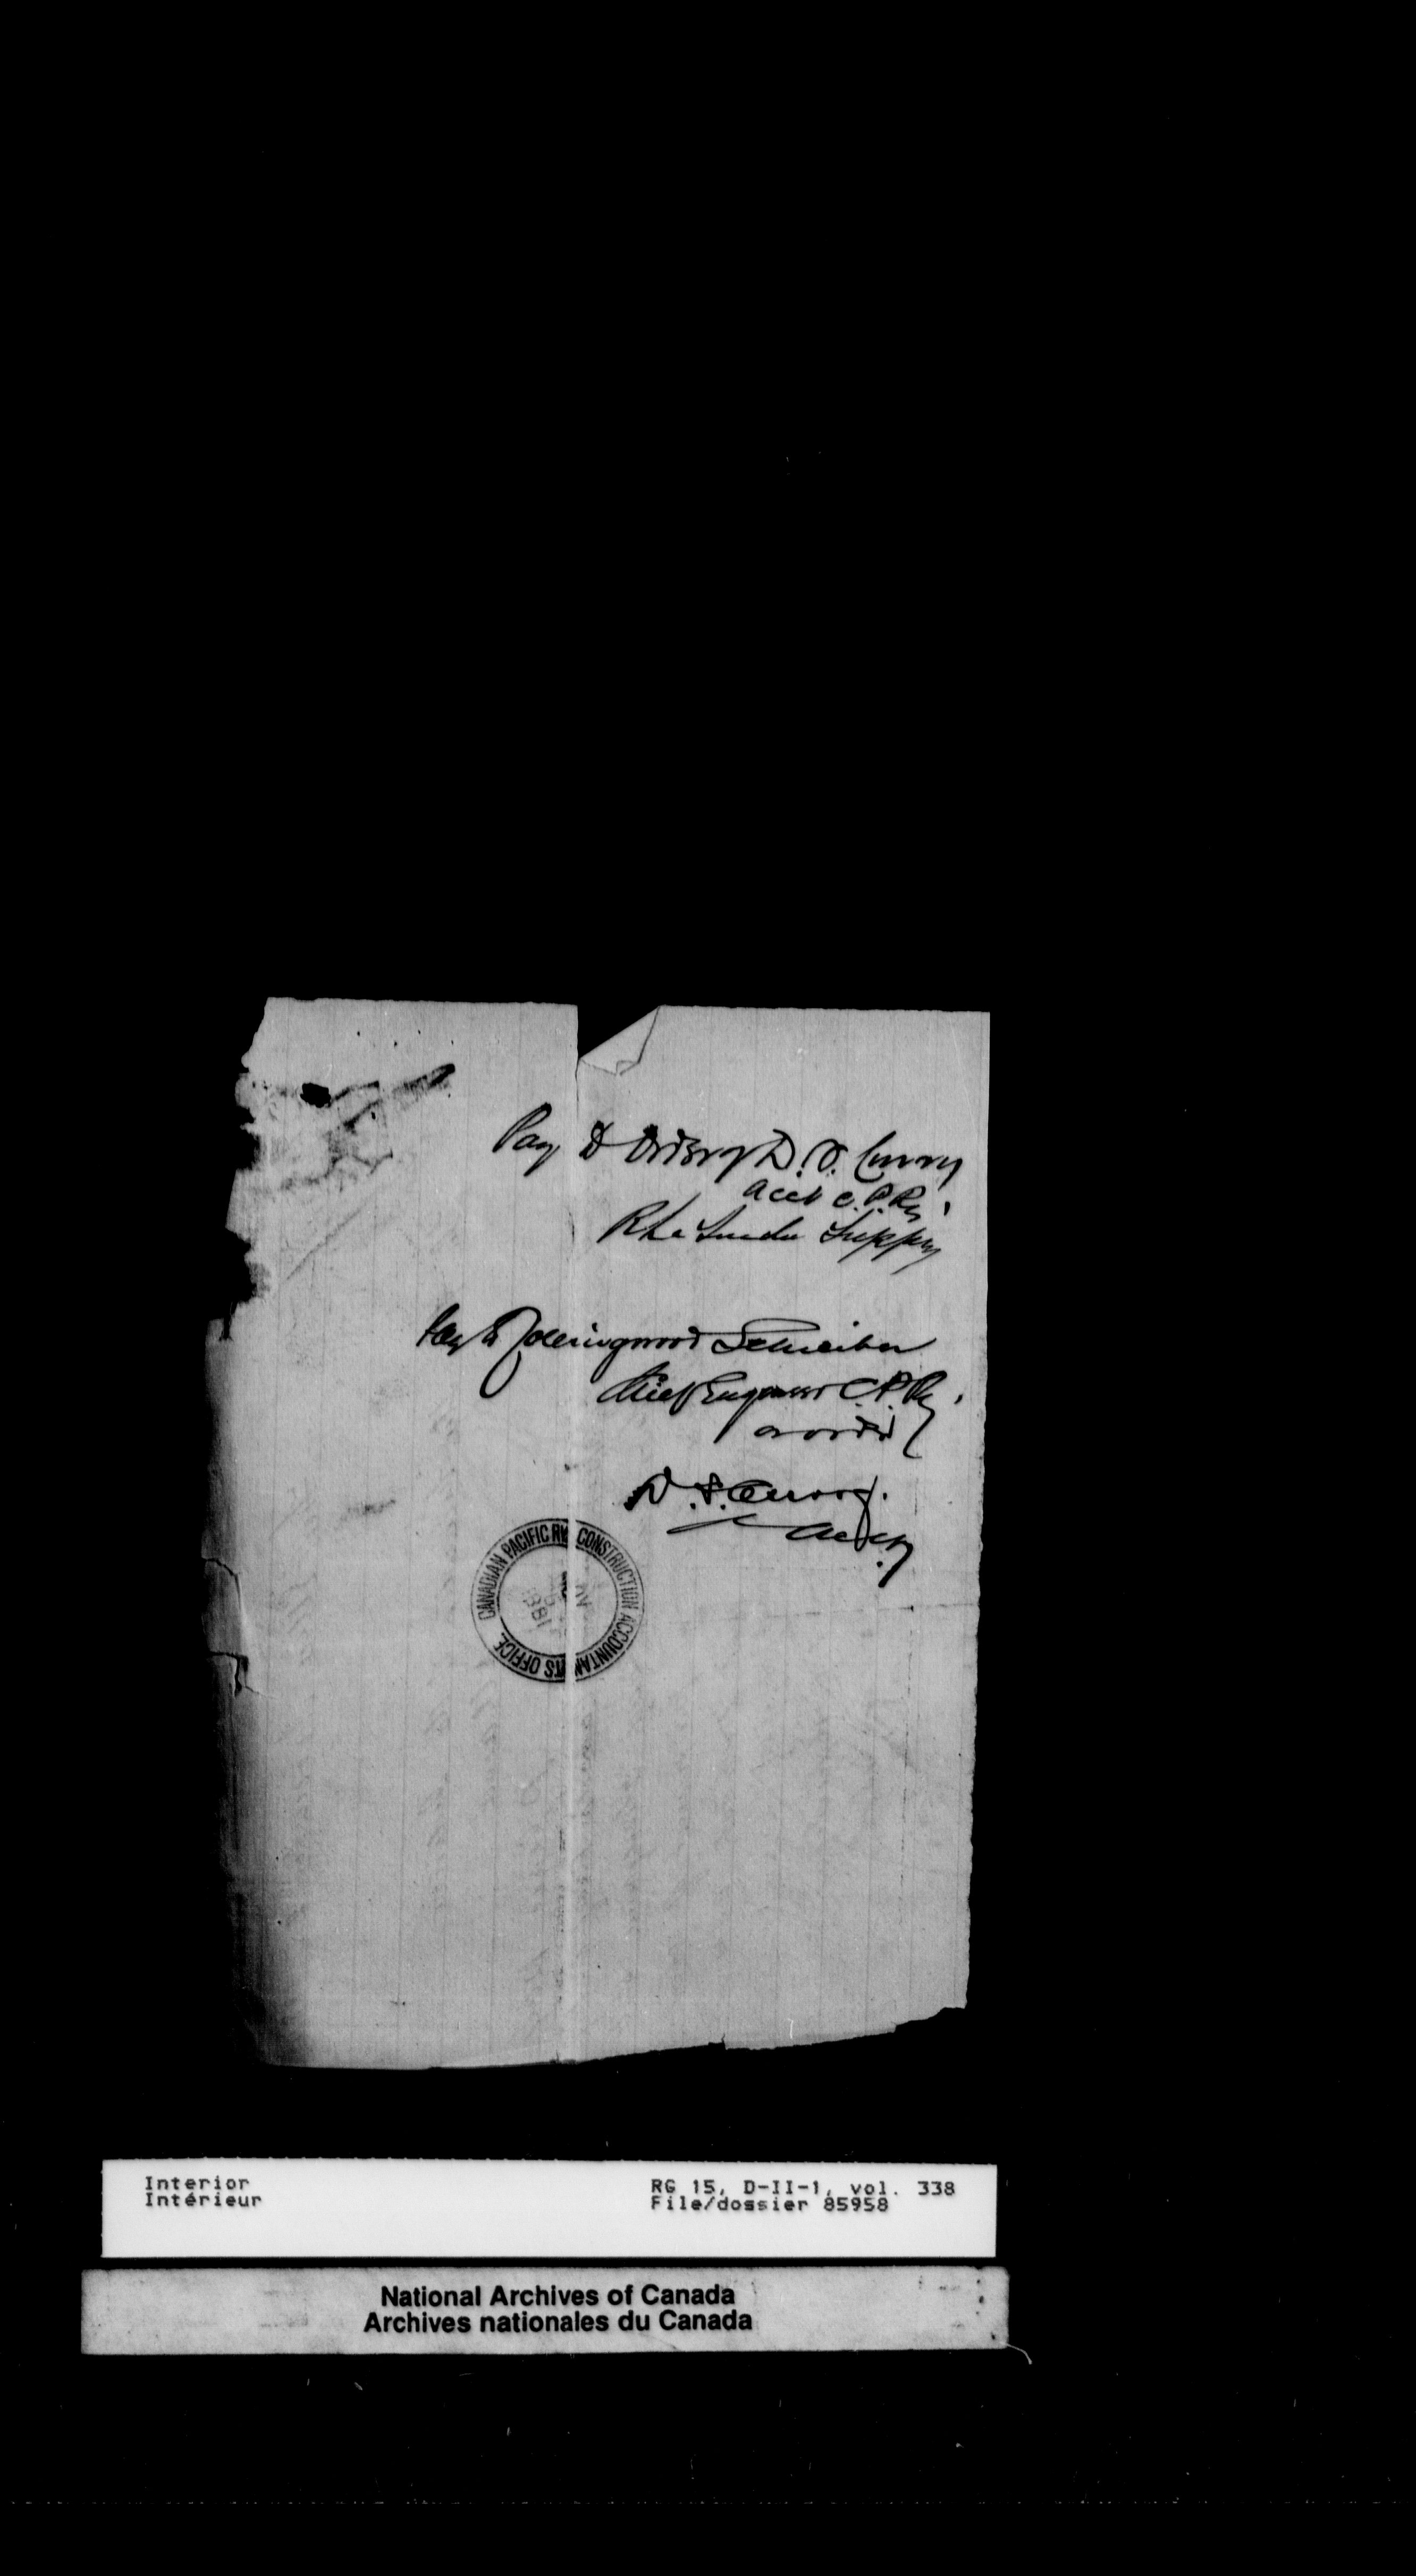 Pay to order of D. S. Curry
Acct C. P. Ry.
Pay to Collingwood Schreiber
Chief Engineer C. P. Ry.
or order
D. S. Curry.
CANADIAN PACIFIC RY. CONSTRUCTION ACCOUNTANTS OFFICE
Interior
Intérieur
RG 15, D-II-1, vol. 338
File/dossier 85958
National Archives of Canada
Archives nationales du Canada